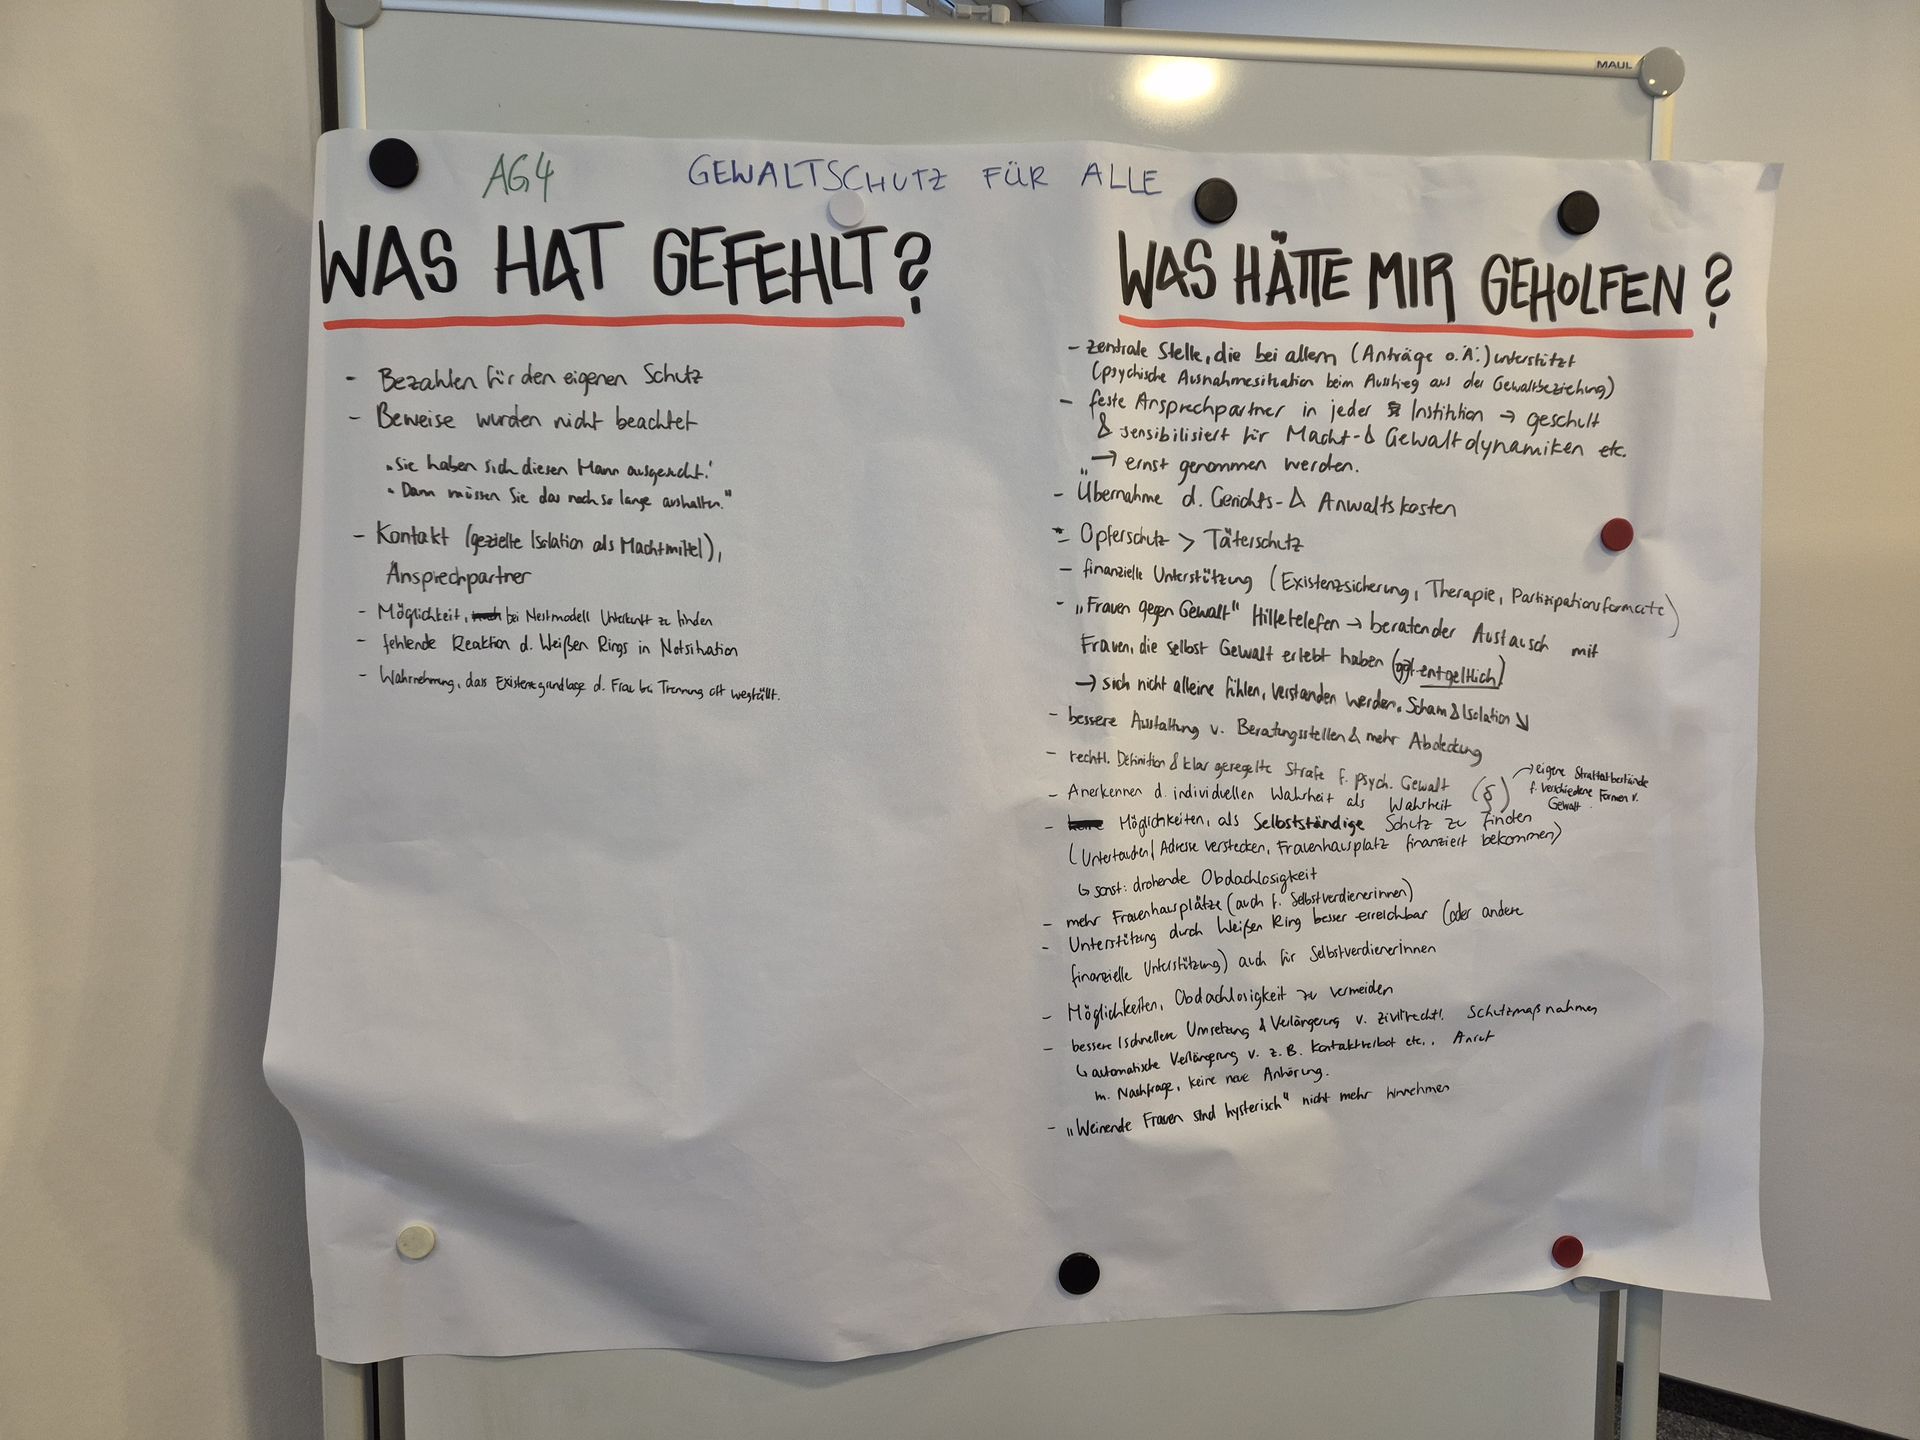 MAUL
AG4
GEWALTSCHUTZ FÜR ALLE
WAS HAT GEFEHLT?
- Bezahlen für den eigenen Schutz
- Beweise wurden nicht beachtet
„Sie haben sich diesen Mann ausgesucht.'
"Dann müssen Sie das noch so lange aushalten."
- Kontakt (gezielte Isolation als Machtmittel),
Ansprechpartner
- Möglichkeit, bei Nestmodell Unterkunft zu finden
- fehlende Reaktion d. Weißen Rings in Notsituation
- Wahrnehmung, dass Existenzgrundlage d. Frau bei Trennung oft wegfällt.
WAS HÄTTE MIR GEHOLFEN?
- zentrale Stelle, die bei allem (Anträge o.Ä.) unterstützt
(psychische Ausnahmesituation beim Ausstieg aus der Gewaltbeziehung)
- feste Ansprechpartner in jeder Institution → geschult
& sensibilisiert für Macht- & Gewaltdynamiken etc.
„ → ernst genommen werden.
- Übernahme d. Gerichts- & Anwaltskosten
- Opferschutz > Täterschutz
- finanzielle Unterstützung (Existenzsicherung, Therapie, Partizipationsformate)
- „Frauen gegen Gewalt" Hilfetelefon → beratender Austausch mit
Frauen, die selbst Gewalt erlebt haben (ggf. entgeltlich)
→ sich nicht alleine fühlen, verstanden werden, Scham & Isolation ↘
- bessere Ausstattung v. Beratungsstellen & mehr Abdeckung
- rechtl. Definition & klar geregelte Strafe f. psych. Gewalt
(§) → eigene Straftatbestände
f. verschiedene Formen v.
Gewalt
- Anerkennen d. individuellen Wahrheit als Wahrheit
- Möglichkeiten, als Selbstständige Schutz zu finden
(Untertauchen/Adresse verstecken, Frauenhausplatz finanziert bekommen)
↳ sonst: drohende Obdachlosigkeit
- mehr Frauenhausplätze (auch f. Selbstverdienerinnen)
- Unterstützung durch Weißen Ring besser erreichbar (oder andere
finanzielle Unterstützung) auch für SelbstverdienerInnen
- Möglichkeiten, Obdachlosigkeit zu vermeiden
- bessere/schnellere Umsetzung & Verlängerung v. zivilrechtl. Schutzmaßnahmen
↳ automatische Verlängerung v. z.B. Kontaktverbot etc., Anruf
m. Nachfrage, keine neue Anhörung.
- „Weinende Frauen sind hysterisch" nicht mehr hinnehmen